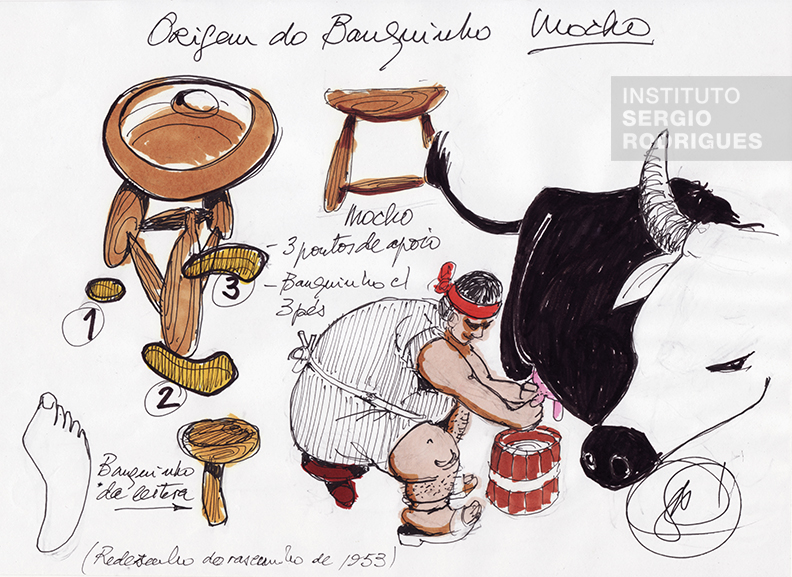 Origem do Banquinho Mocho
INSTITUTO
SERGIO
RODRIGUES
Mocho
- 3 pontos de apoio
- Banquinho c/
3 pés
1
3
2
Banquinho
"da leitera
(Redesenho do rascunho de 1953)